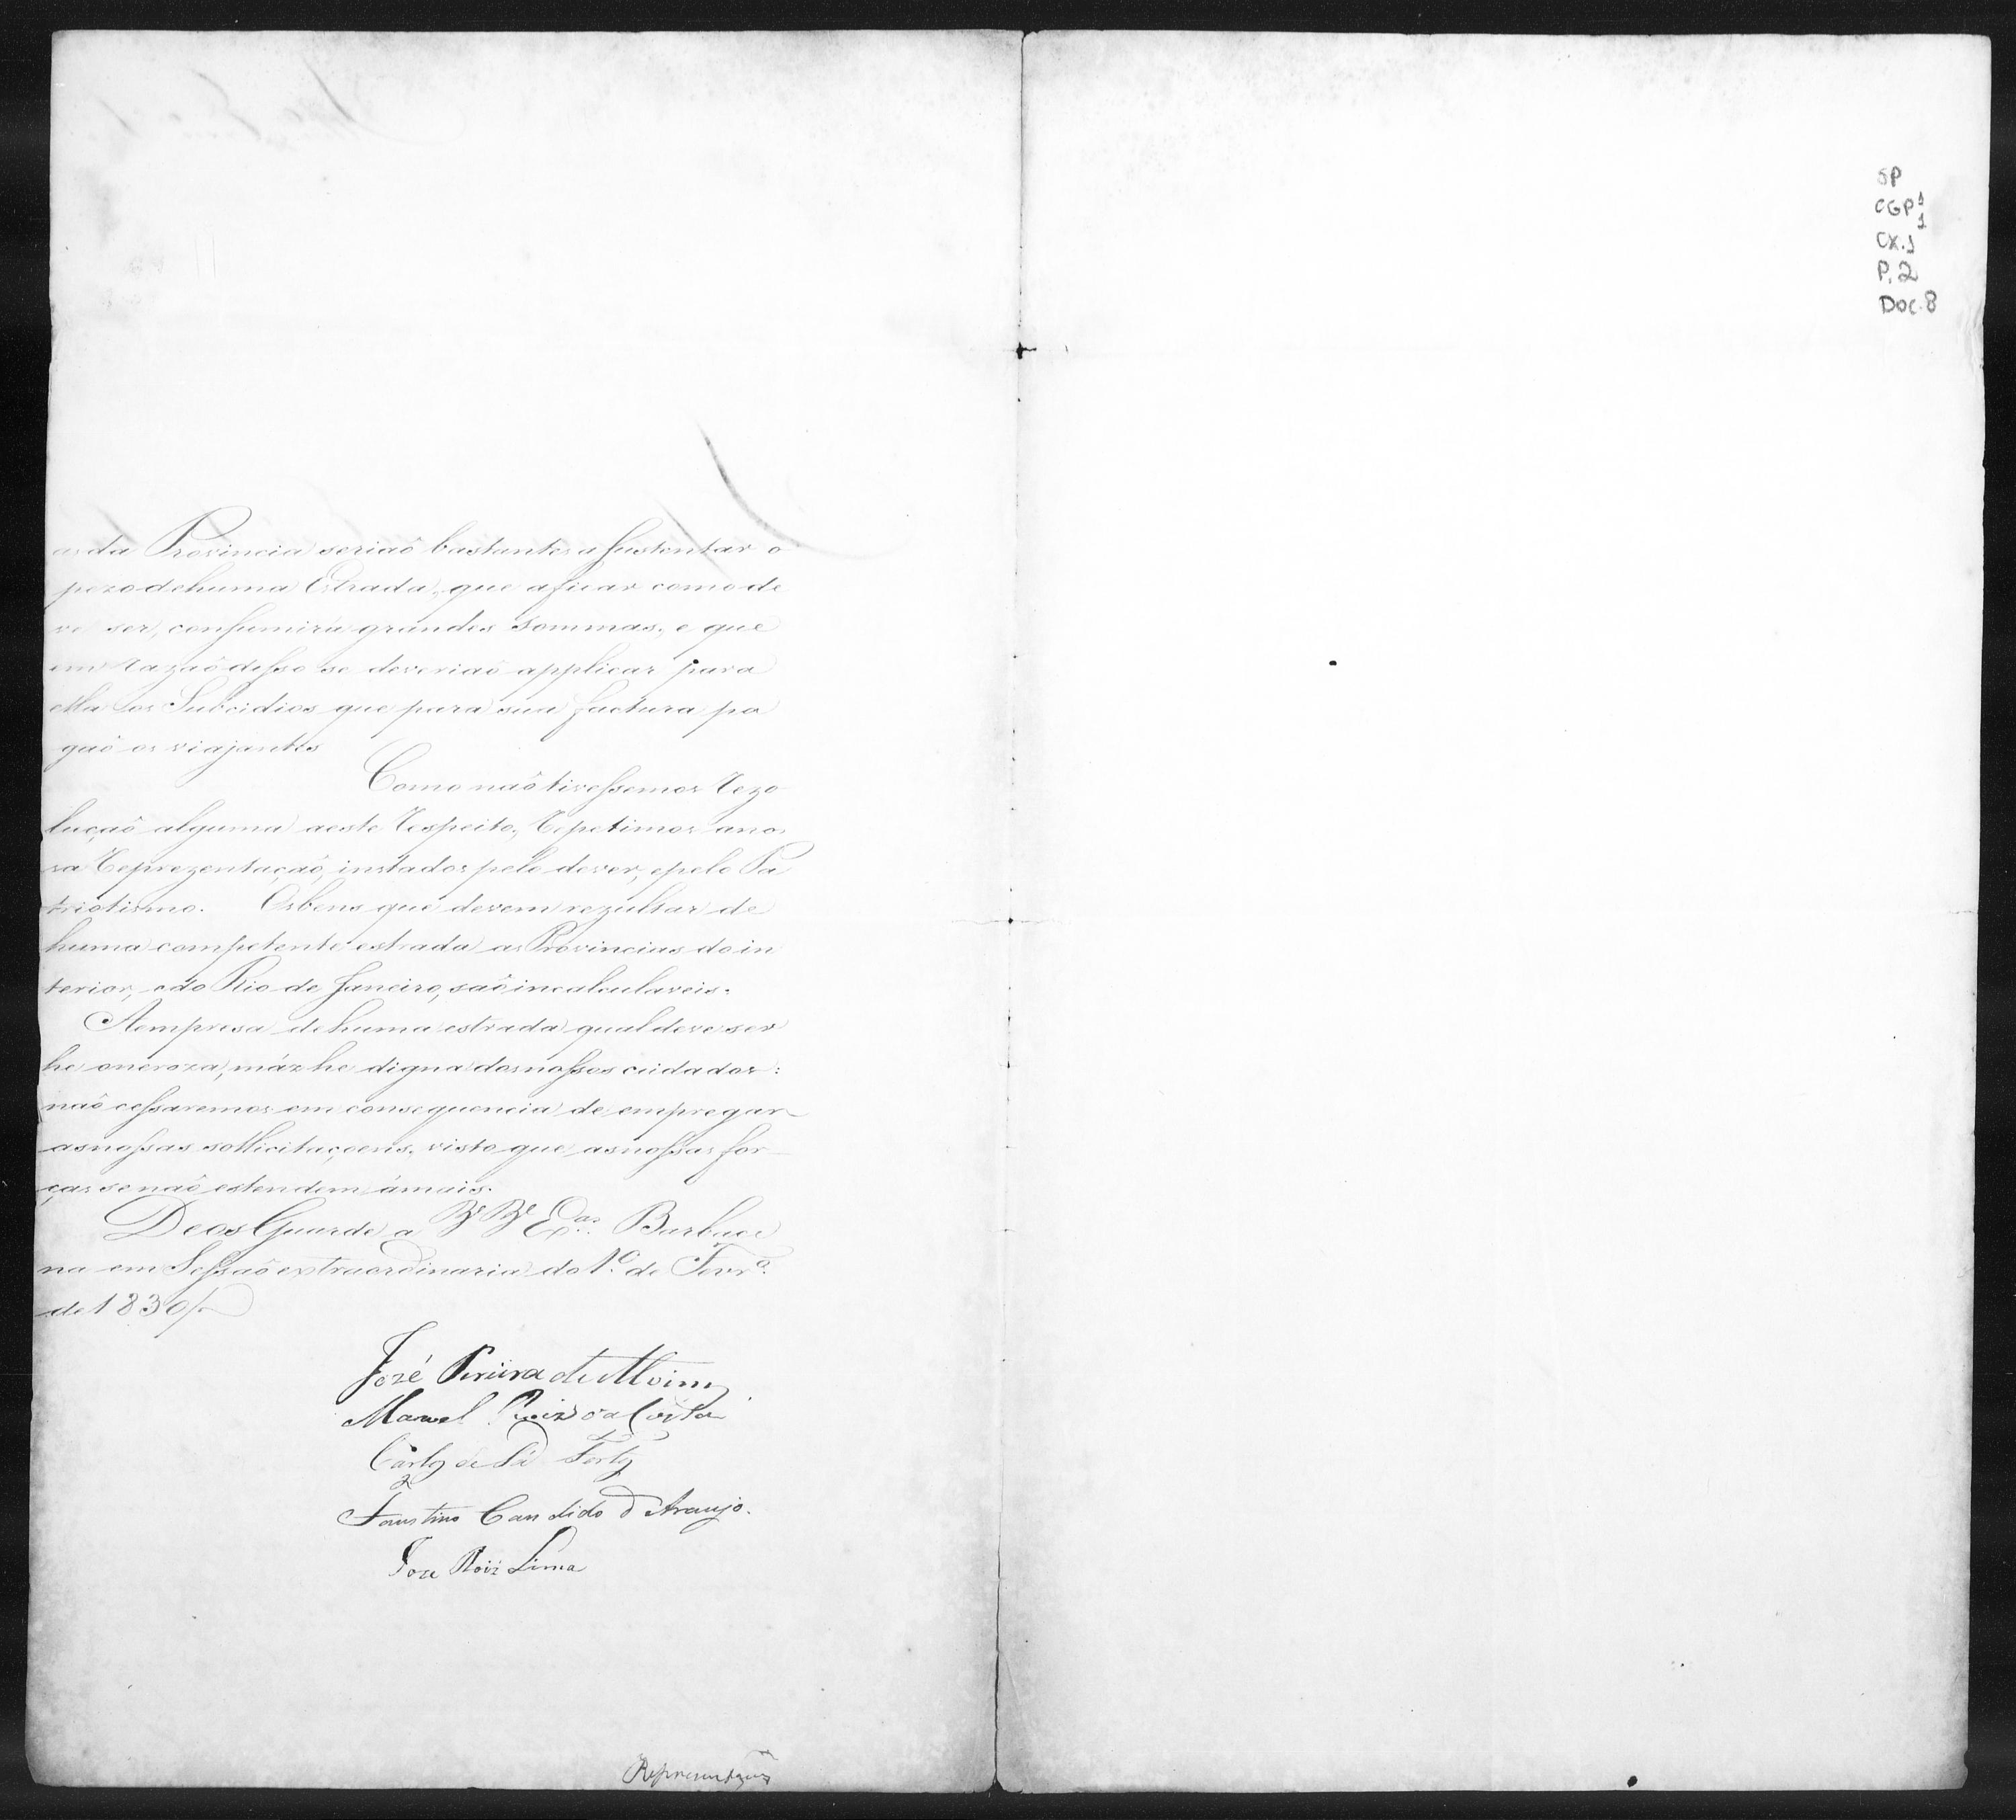 as da Provincia seriaõ bastantes a sustentar o
pezo de huma Estrada, que a ficar como de
ve ser, consumirá grandes sommas, e que
em razaõ desso se deveriaõ applicar para
ella os Subcidios que para sua factura pa
gaõ os viajantes
Como naõ tivessemos rezo
luçaõ alguma a este respeito, repetimos a nos
sa reprezentaçaõ, instados pelo dever, e pelo Pa
triotismo. Os bens que devem rezultar de
huma competente estrada as Provincias do in
terior, e do Rio de Janeiro, saõ incalculaveis.
A empresa de huma estrada qual deve ser
he oneroza, máz he digna dos nossos cuidados:
naõ cessaremos em consequencia de empregar
as nossas sollicitaçoens, visto que as nossas for
ças se naõ estendem á mais.
Deos Guarde a Vs Vs Exas. Barbace
na em Sessaõ extraordinaria do 1º de Fevrº
de 1830
José Pereira de Alvim
Manoel Roiz da Costa
Carlos de Sá Fortes
Faustino Candido d Araujo.
Joze Roiz Lima
Representações
SP
CGP1
1
CX.1
P.2
Doc.8